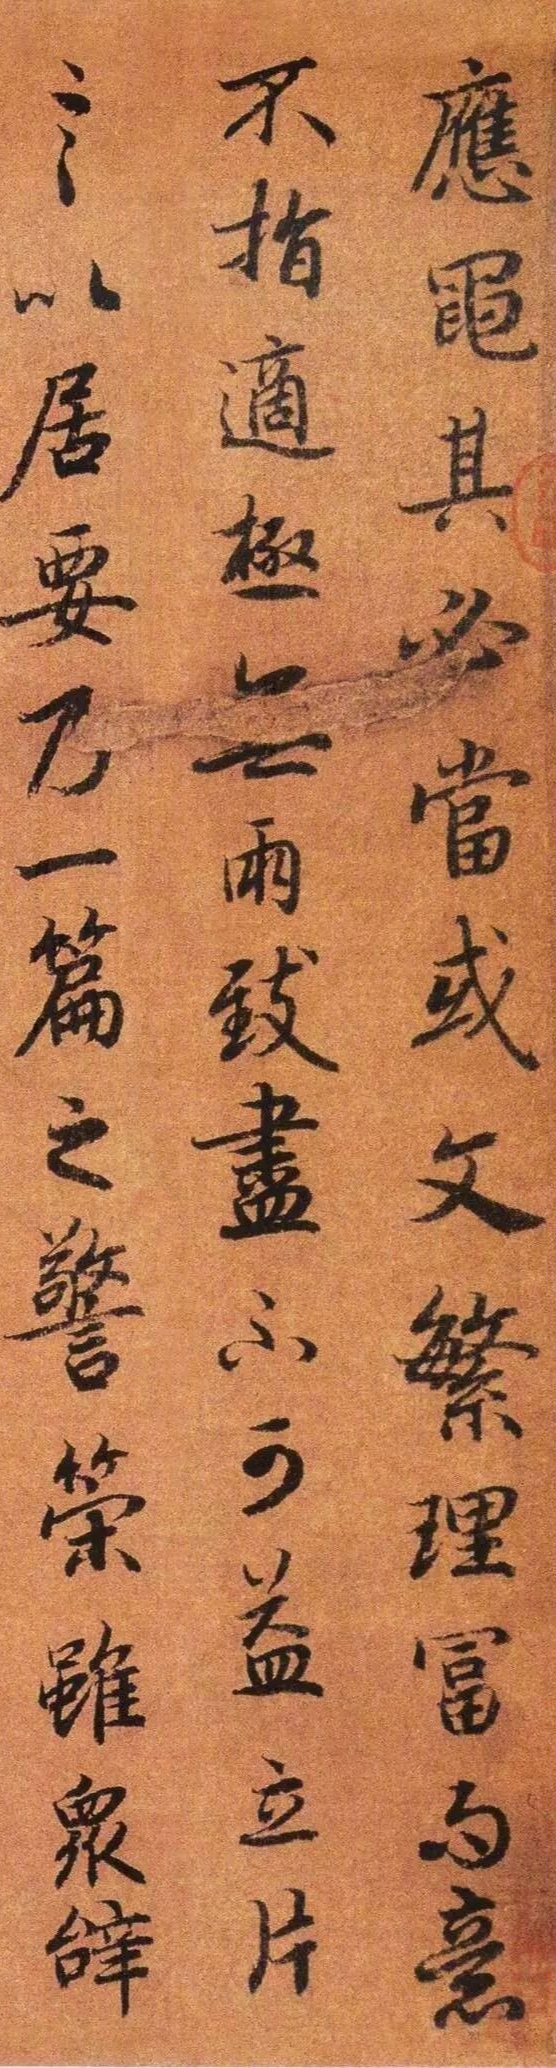 應黽其必當或文繁理富而意
不指適極無兩致盡不可益立片
言以居要乃一篇之警策雖眾辝